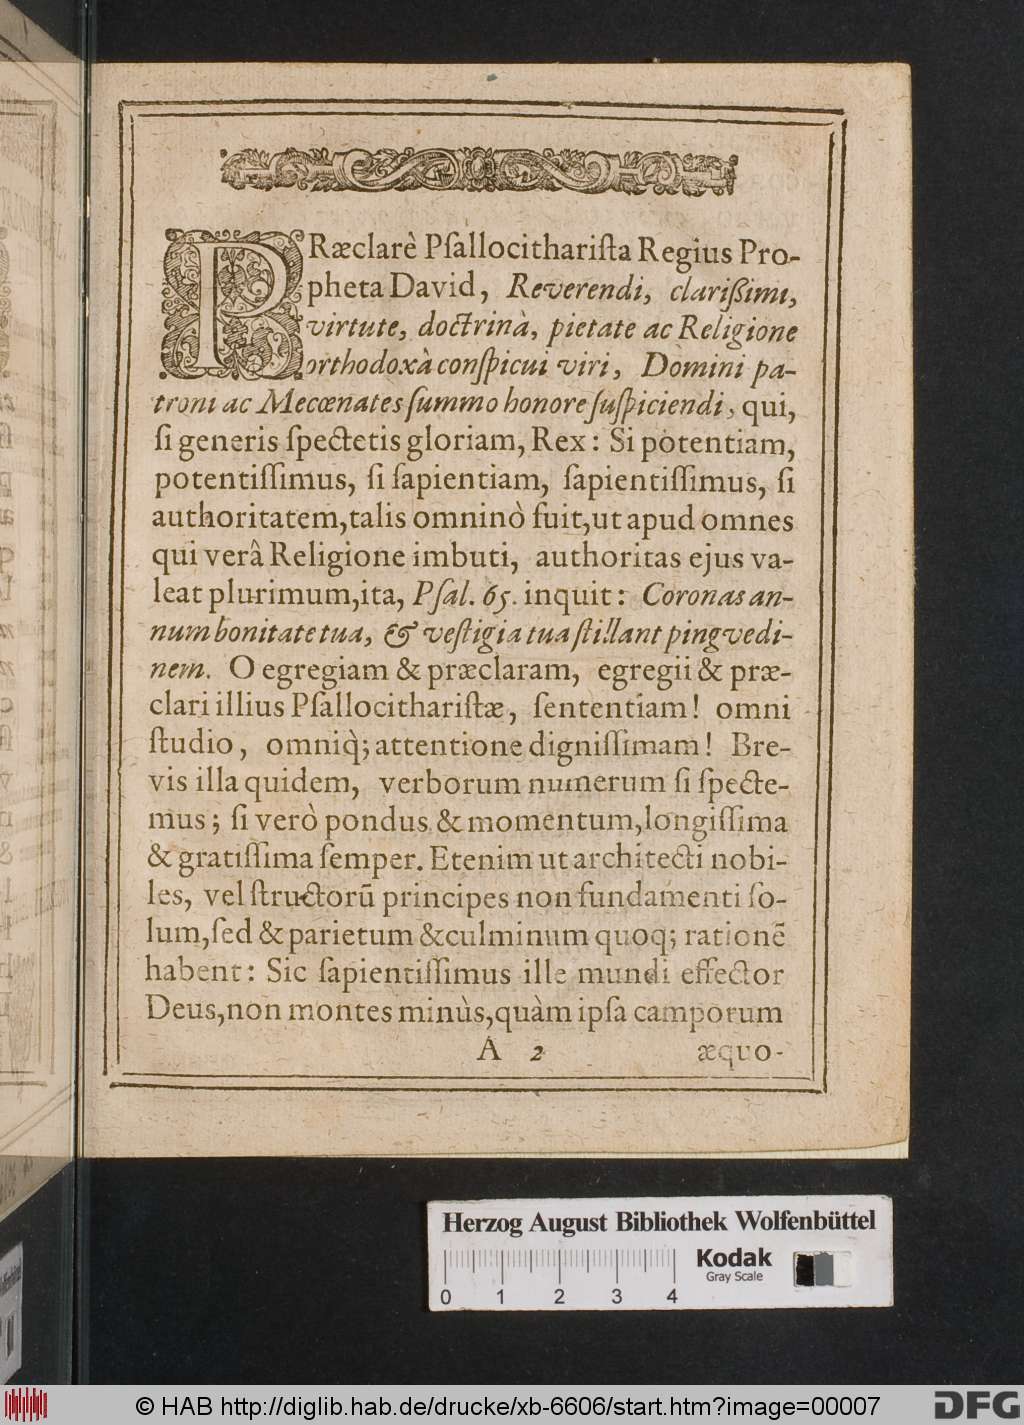 PRæclarè Pſallocithariſta Regius Pro-
pheta David, Reverendi, clarißimi,
virtute, doctrinà, pietate ac Religione
orthodoxà conſpicui viri, Domini pa-
troni ac Mecœnates ſummo honore ſuſpiciendi, qui,
ſi generis ſpectetis gloriam, Rex: Si potentiam,
potentiſſimus, ſi ſapientiam, ſapientiſſimus, ſi
authoritatem, talis omninò fuit, ut apud omnes
qui verâ Religione imbuti, authoritas ejus va-
leat plurimum, ita, Pſal. 65. inquit: Coronas an-
num bonitate tua, & veſtigia tua ſtillant pingvedi-
nem. O egregiam & præclaram, egregii & præ-
clari illius Pſallocithariſtæ, ſententiam! omni
ſtudio, omniq̀; attentione digniſſimam! Bre-
vis illa quidem, verborum numerum ſi ſpecte-
mus; ſi verò pondus & momentum, longiſſima
& gratiſſima ſemper. Etenim ut architecti nobi-
les, vel ſtructorũ principes non fundamenti ſo-
lum, ſed & parietum & culminum quoq; rationẽ
habent: Sic ſapientiſſimus ille mundi effector
Deus, non montes minùs, quàm ipſa camporum
A 2 æquo-
Herzog August Bibliothek Wolfenbüttel
Kodak
Gray Scale
0 1 2 3 4
© HAB http://diglib.hab.de/drucke/xb-6606/start.htm?image=00007
DFG